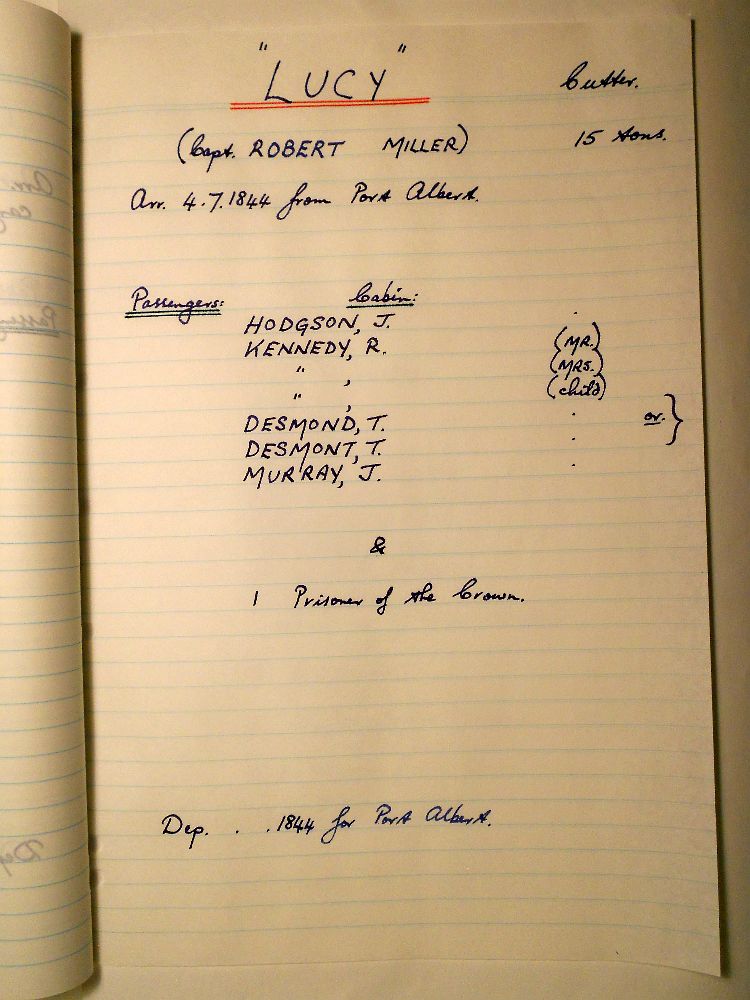 "LUCY" Cutter.
(Capt. ROBERT MILLER) 15 tons.
Arr. 4.7.1844 from Port Albert.
Passengers: Cabin:
HODGSON, J. .
KENNEDY, R. (MR.)
" , (MRS.)
" , (child)
DESMOND, T. . or. }
DESMONT, T. .
MURRAY, J. .
&
1 Prisoner of the Crown.
Dep. . . 1844 for Port Albert.